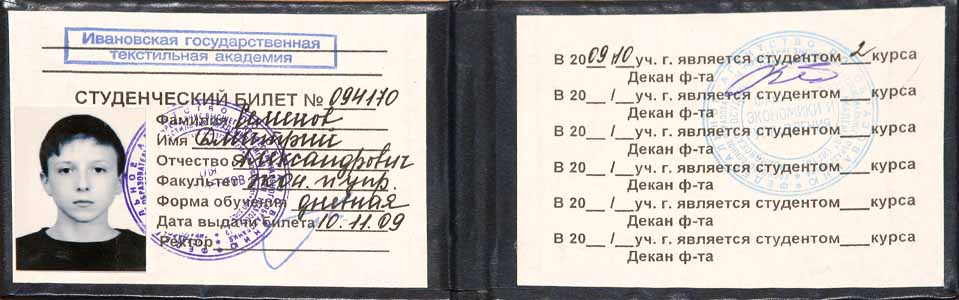 Ивановская государственная
текстильная академия
СТУДЕНЧЕСКИЙ БИЛЕТ № 094170
Фамилия Семенов
Имя Дмитрий
Отчество Александрович
Факультет экон. и упр.
Форма обучения дневная
Дата выдачи билета 10.11.09
Ректор
В 2009/10 уч. г. является студентом 2 курса
Декан ф-та
В 20__/__уч. г. является студентом___курса
Декан ф-та
В 20__/__уч. г. является студентом___курса
Декан ф-та
В 20__/__уч. г. является студентом___курса
Декан ф-та
В 20__/__уч. г. является студентом___курса
Декан ф-та
В 20__/__уч. г. является студентом___курса
Декан ф-та